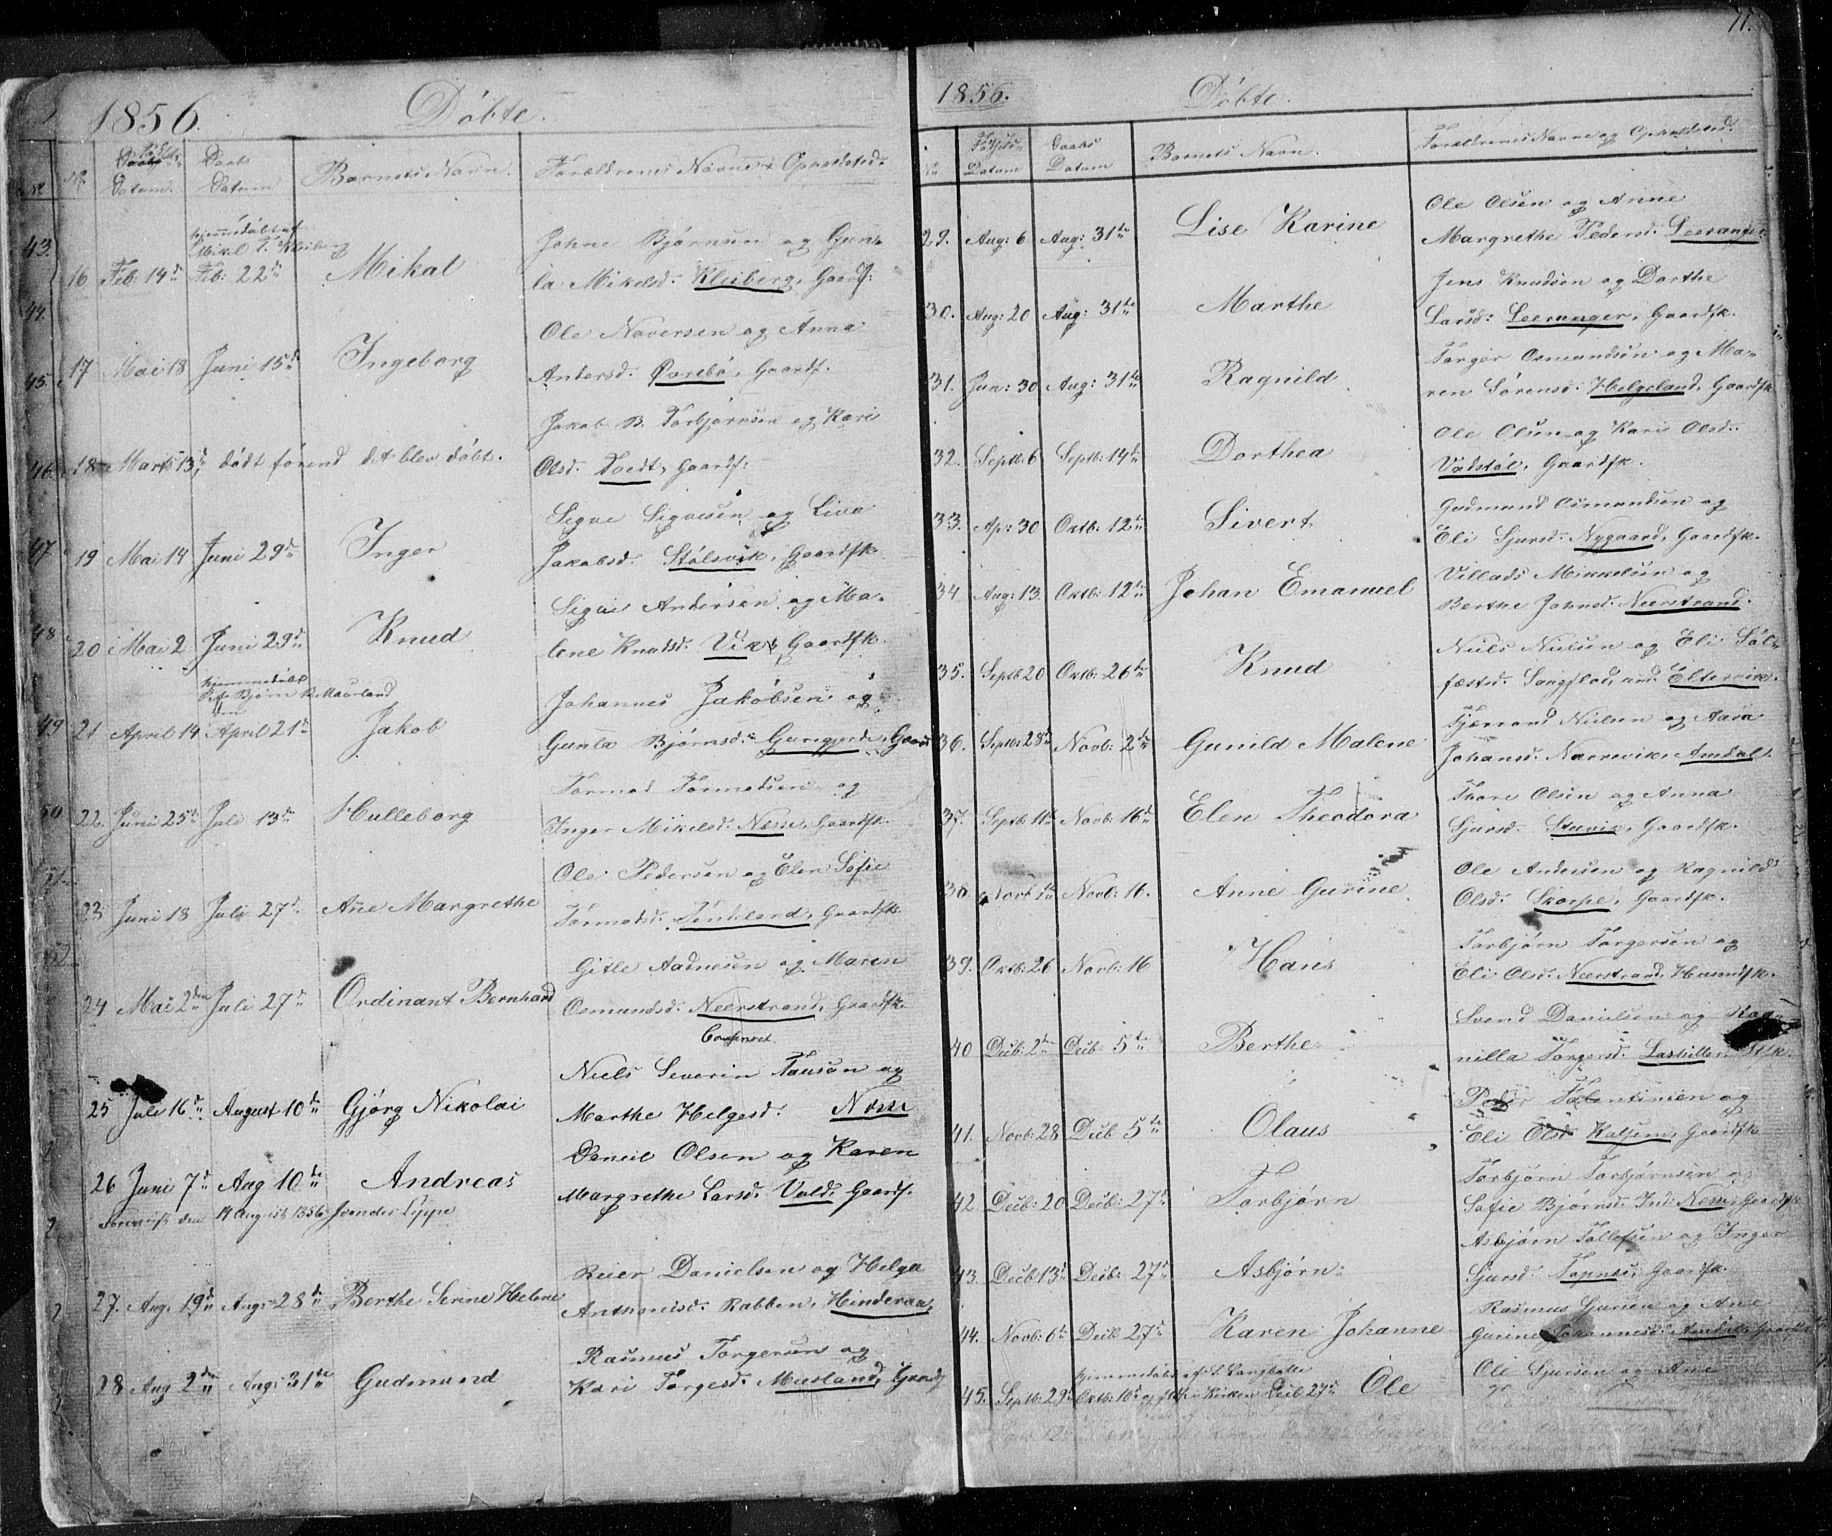 1856. Døbte.
No. Fødsels Datum. Daabs Datum Barnets Navn. Forældrenes Navne & Opholdsted.
43. hjemmedøbt af
Mikel T. Kleiberg Johne Bjørnsen og Gun-
16 Feb: 14de Feb: 22de Mikal la Mikelsd: Kleiberg, Gaardf:
44. Ole Naversen og Anna
45. 17 Mai 18 Juni 15de Ingeborg Andersd. Gaardf.
Jakob B. Torbjørnsen og Kari
46. 18 Marts 13de, dødt førend det blev døbt. Olsd: Tvedt, Gaardf:
Sigve Sigvesen og Liva
47 19 Mai 14 Juni 29de Inger Jakobsd. Stølsvik, Gaardfk.
Sigve Andersen og Ma-
48 20 Mai 2 Juni 29de Knud lene Knudsd. Vik, Gaardfk.
hjemmedøbt
af Bjørn B. Maurland Johannes Jakobsen og
49 21 April 14 April 21de Jakob Gunla Bjørnsd: Gaard
Tormod Tormodsen og
50 22. Juni 25de Juli 13de Hulleborg Inger Mikelsd: Næss, Gaardfk.
51 Ole Pedersen og Elen Sofie
23 Juni 18 Juli 27de Ane Margrethe Tormodsd. Gaardfk.
52 Gitle Aadnesen og Maren
24 Mai 2den Juli 27de Ordinant Bernhard Osmundsd: Neerstrand, Gaardfk.
Niels Severin Tousen og
25 Juli 16de August 10de Gjørg Nikolai Marthe Helgesd. Næss
Daniel Olsen og Karen
26 Juni 7de Aug 10de Andreas Margrethe Larsd. Vold, Gaardf.
den 14 August 1856
Reier Danielsen og Helga
27. Aug. 19de Aug: 28de Berthe Serine Helene Anthonisd. Rabben, Hinderaa,
Rasmus Torgersen og
28 Aug 2den Aug: 31te Gudmund Kari Torgesd. Musland, Gaardf
11.
1856. Døbte.
No Fødsels Datum Daabs Datum Barnets Navn. Forældrenes Navne og Opholdsted.
Ole Olsen og Anne
29. Aug: 6 Aug: 31te Lise Karine Margrethe Pedersd. Leeranger.
Jens Knudsen og Dorthe
30. Aug: 20 Aug: 31te Marthe Larsd: Leeranger, Gaardfk.
Torger Osmundsen og Ma-
31. Jun: 30 Aug: 31te Ragnild ren Sørensd. Helgeland, Gaardfk
Ole Olsen og Kari Olsd.
32. Septb: 6 Septb: 14de Dorthea Vadstøl, Gaardfk.
Gudmund Osmundsen og
33. Ap: 30 Oktb: 12te Sivert Eli Sjursd. Nygaard, Gaardfk.
Villads Mikkelsen og
34 Aug: 13. Oktb: 12te Johan Emanuel Berthe Johnsd. Neerstrand.
Niels Nielsen og Eli Søl-
35. Septb 20 Oktb: 26de Knud festsd. Eltesvik.
Fjærrand Nielsen og Aasa
36. Septb: 28de Novb: 2den Gunild Malene Johansd. Narrevik, Amdal.
Thore Olsen og Anna
37. Septb: 11te Novb: 16de Elen Theodora Sjursd. Stuvig, Gaardfk.
Ole Andersen og Ragnild
38. Novb 1te Novb: 16. Anne Gurine Olsd: Skorpe, Gaardfk.
Torbjørn Torgersen og
39. Oktb: 26 Novb: 16 Hans Eli Olsd. Neerstrand, Huusmdfk.
Svend Danielsen og Rag-
40 Decb: 2den Decb: 5te Berthe nilla Torgersd.
og
41. Novb: 28 Decb 5te Olaus Eli Olsd. Gaardfk
Torbjørn Torbjørnsen og
42. Decb: 20 Decb: 27de Torbjørn Sofie Bjørnsd. Ind: Næss, Gaardfk
Asbjørn Tollefsen og Inger
43. Decb 13de Decb: 27de Asbjørn. Sjursd. Gaardfk.
Rasmus Sjursen og Ane
44. Novb: 6te Decb 27de Karen Johanne Gurine Johannesd. Amdal, Gaardfk
hjemmedøbt af Ole Sjursen og Ane
45. Septb: 29de Oktb: 16de og i Kirken Decb 27de Ole